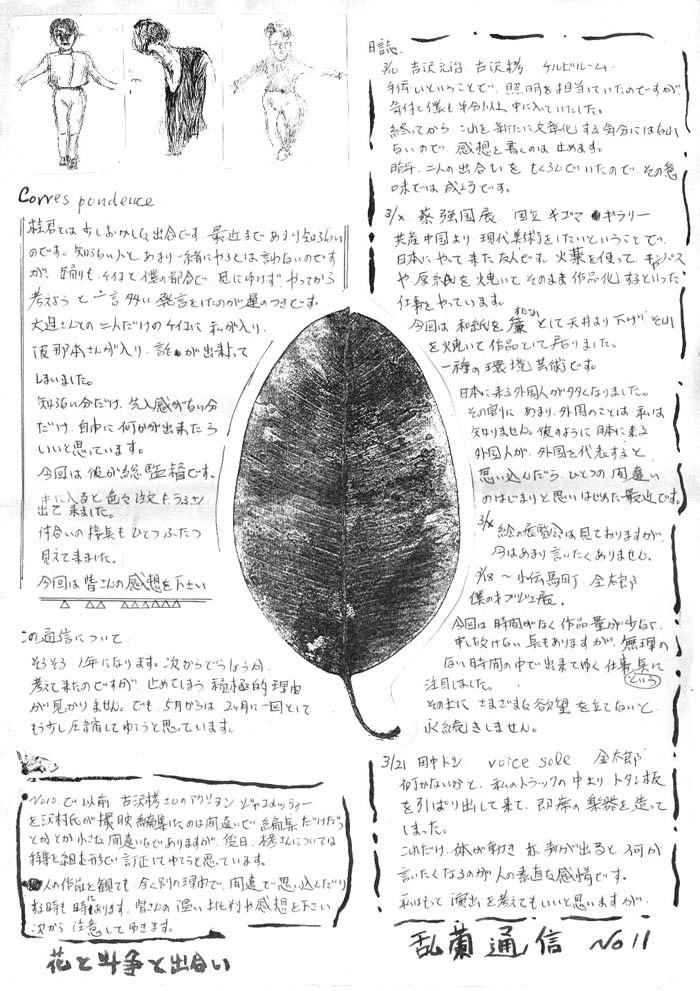 Correspondence
桂君とは少しおかしな出合です。最近まであまり知らない
のです。知らない人とあまり一緒にやろうとは言わないのです
が、踊りもケイコと僕の都合で、見にゆけず、やってから
考えようと一言多い発言をしたのが運のつきです。
大辺さんとの二人だけのケイコに私が入り、
しまいました。
知らない分だけ、先入感がない分
だけ、自由に何かが出来たら
いいと思っています。
今回は彼が総監督です。
中に入ると色々注文もうるさく
出て来ました。
付合いの接点もひとつふたつ
見えて来ました。
今回は皆さんの感想を下さい
この通信について
そろそろ1年になります。次からどうしようか、
考えて来たのですが、止めてしまう積極的理由
が見かりません。でも、5月からは2ヶ月に一回として
もう少し圧縮してゆこうと思っています。
No10.で以前 古沢栲さんのアクリョン ジャコメッティー
を沢村氏が撮映編集したのは間違いで編集だけだっ
とかとか小さな間違いなどありますが、後日、栲さんについては
特集を組む形で訂正してゆこうと思っています。
人の作品を観ても、全く別の理由で、間違って思い込んだり
する時も時にあります。皆さんの温い批判や感想を下さい
次から注意してゆきます。
花と斗争と出合い
日誌.
3/10 吉沢元治 古沢栲 ケルビルーム.
手伝いということで、照明を担当していたのですが
気付く僕も半分以上中に入っていたした。
終ってから これを新たに文章化する気分にはなれ
ないので、感想を書くのは止めます。
昨年、二人の出合いをもくろんでいたので、その意
味では成功です。
3/× 蔡強国展 国立 キゴマ ギャラリー
共産中国より現代美術をしたいということで、
日本にやって来た友人です。火薬を使って、キャンバス
や、原紙を焼いてそのまま作品化するといった
仕事をやっています。
今回は和紙を簾(すだれ)として天井より下げ、それ
を焼いて作品として居りました。
一種の環境芸術です。
日本に来る外国人が多くなりました。
その割にあまり外国のことは私は
知りません。彼のように日本に来る
外国人が、外国を代表すると
思い込んだら、ひとつの間違い
のはじまりと思いはじめた最近です。
3/× 絵の展覧会は見ておりますが、
今はあまり言いたくありません。
3/18 〜 小伝馬町 全太郎
僕のオブジェ展.
今回は時間がなく作品量が少なく、
申し訳けない点もありますが、無理の
ない時間の中で出来てゆく仕事という点に
注目しました。
その上にさまざまな欲望を立てないと、
永続きしません。
3/21 田中トシ voice solo 全太郎
何かないかと、私のトラックの中より、トタン板
を引ぱり出して来て、即席の楽器を造って
しまった。
これだけ、体が動き亦声が出ると、何か
言いたくなるのが人の素直な感情です。
私はもっと演出を考えてもいいと思いますが
乱蘭通信 No11